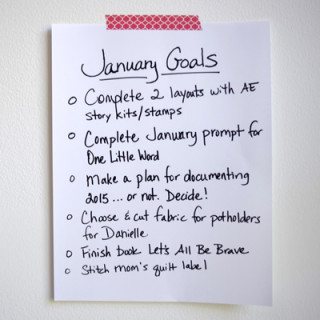 January Goals
Complete 2 layouts with AE
story kits/stamps
Complete January prompt for
One Little Word
Make a plan for documenting
2015... or not. Decide!
Choose & cut fabric for potholders
for Danielle
Finish book Let's All Be Brave
Stitch mom's quilt label